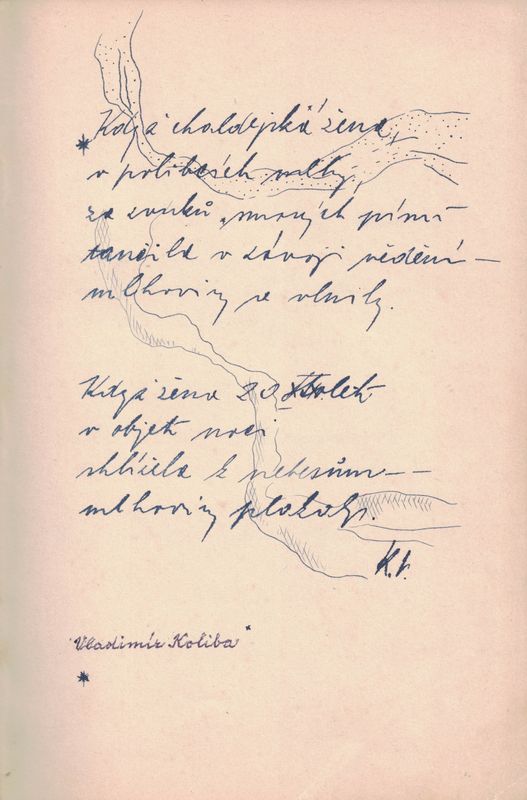 Když chaldejská žena,
v polibcích mlhy,
za zvuků mroucích písní
tančila v závoji vědění —
mlhoviny se vlnily.
Když žena 20 stolet.
v objetí noci
shlížela k nebesům — —
mlhoviny plakaly.
K.V.
"Vladimír Koliba"